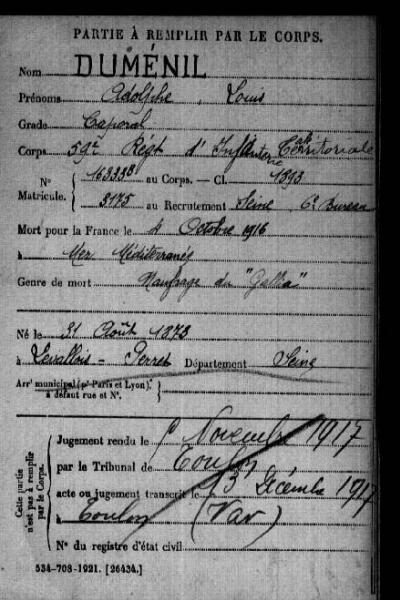 PARTIE À REMPLIR PAR LE CORPS.
Nom DUMÉNIL
Prénoms Adolphe, Louis
Grade Caporal
Corps 59e Régt d'Infanterie Territoriale
N° Matricule. { 16333B au Corps. — Cl. 1893
3175 au Recrutement Seine, 6e Bureau
Mort pour la France le 4 Octobre 1916
à Mer Méditerranée
Genre de mort Naufrage du "Gallia"
Né le 31 Août 1873
à Levallois-Perret Département Seine
Arrt municipal (pr Paris et Lyon), à défaut rue et N°.
Cette partie n'est pas à remplir par le Corps.
Jugement rendu le Novembre 1917
par le Tribunal de Toulon
acte ou jugement transcrit le 3 Décembre 1917
à Toulon (Var)
N° du registre d'état civil
534-708-1921. [26434.]